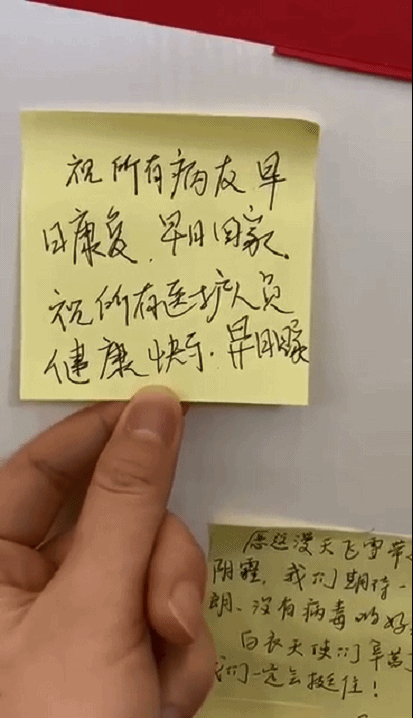 祝所有病友早
日康复，早日回家.
祝所有医护人员
健康快乐.早日回家
愿这漫天飞雪带
阴霾，我们期待一
朗、没有病毒的好
白衣天使们早
我们一定会挺住！